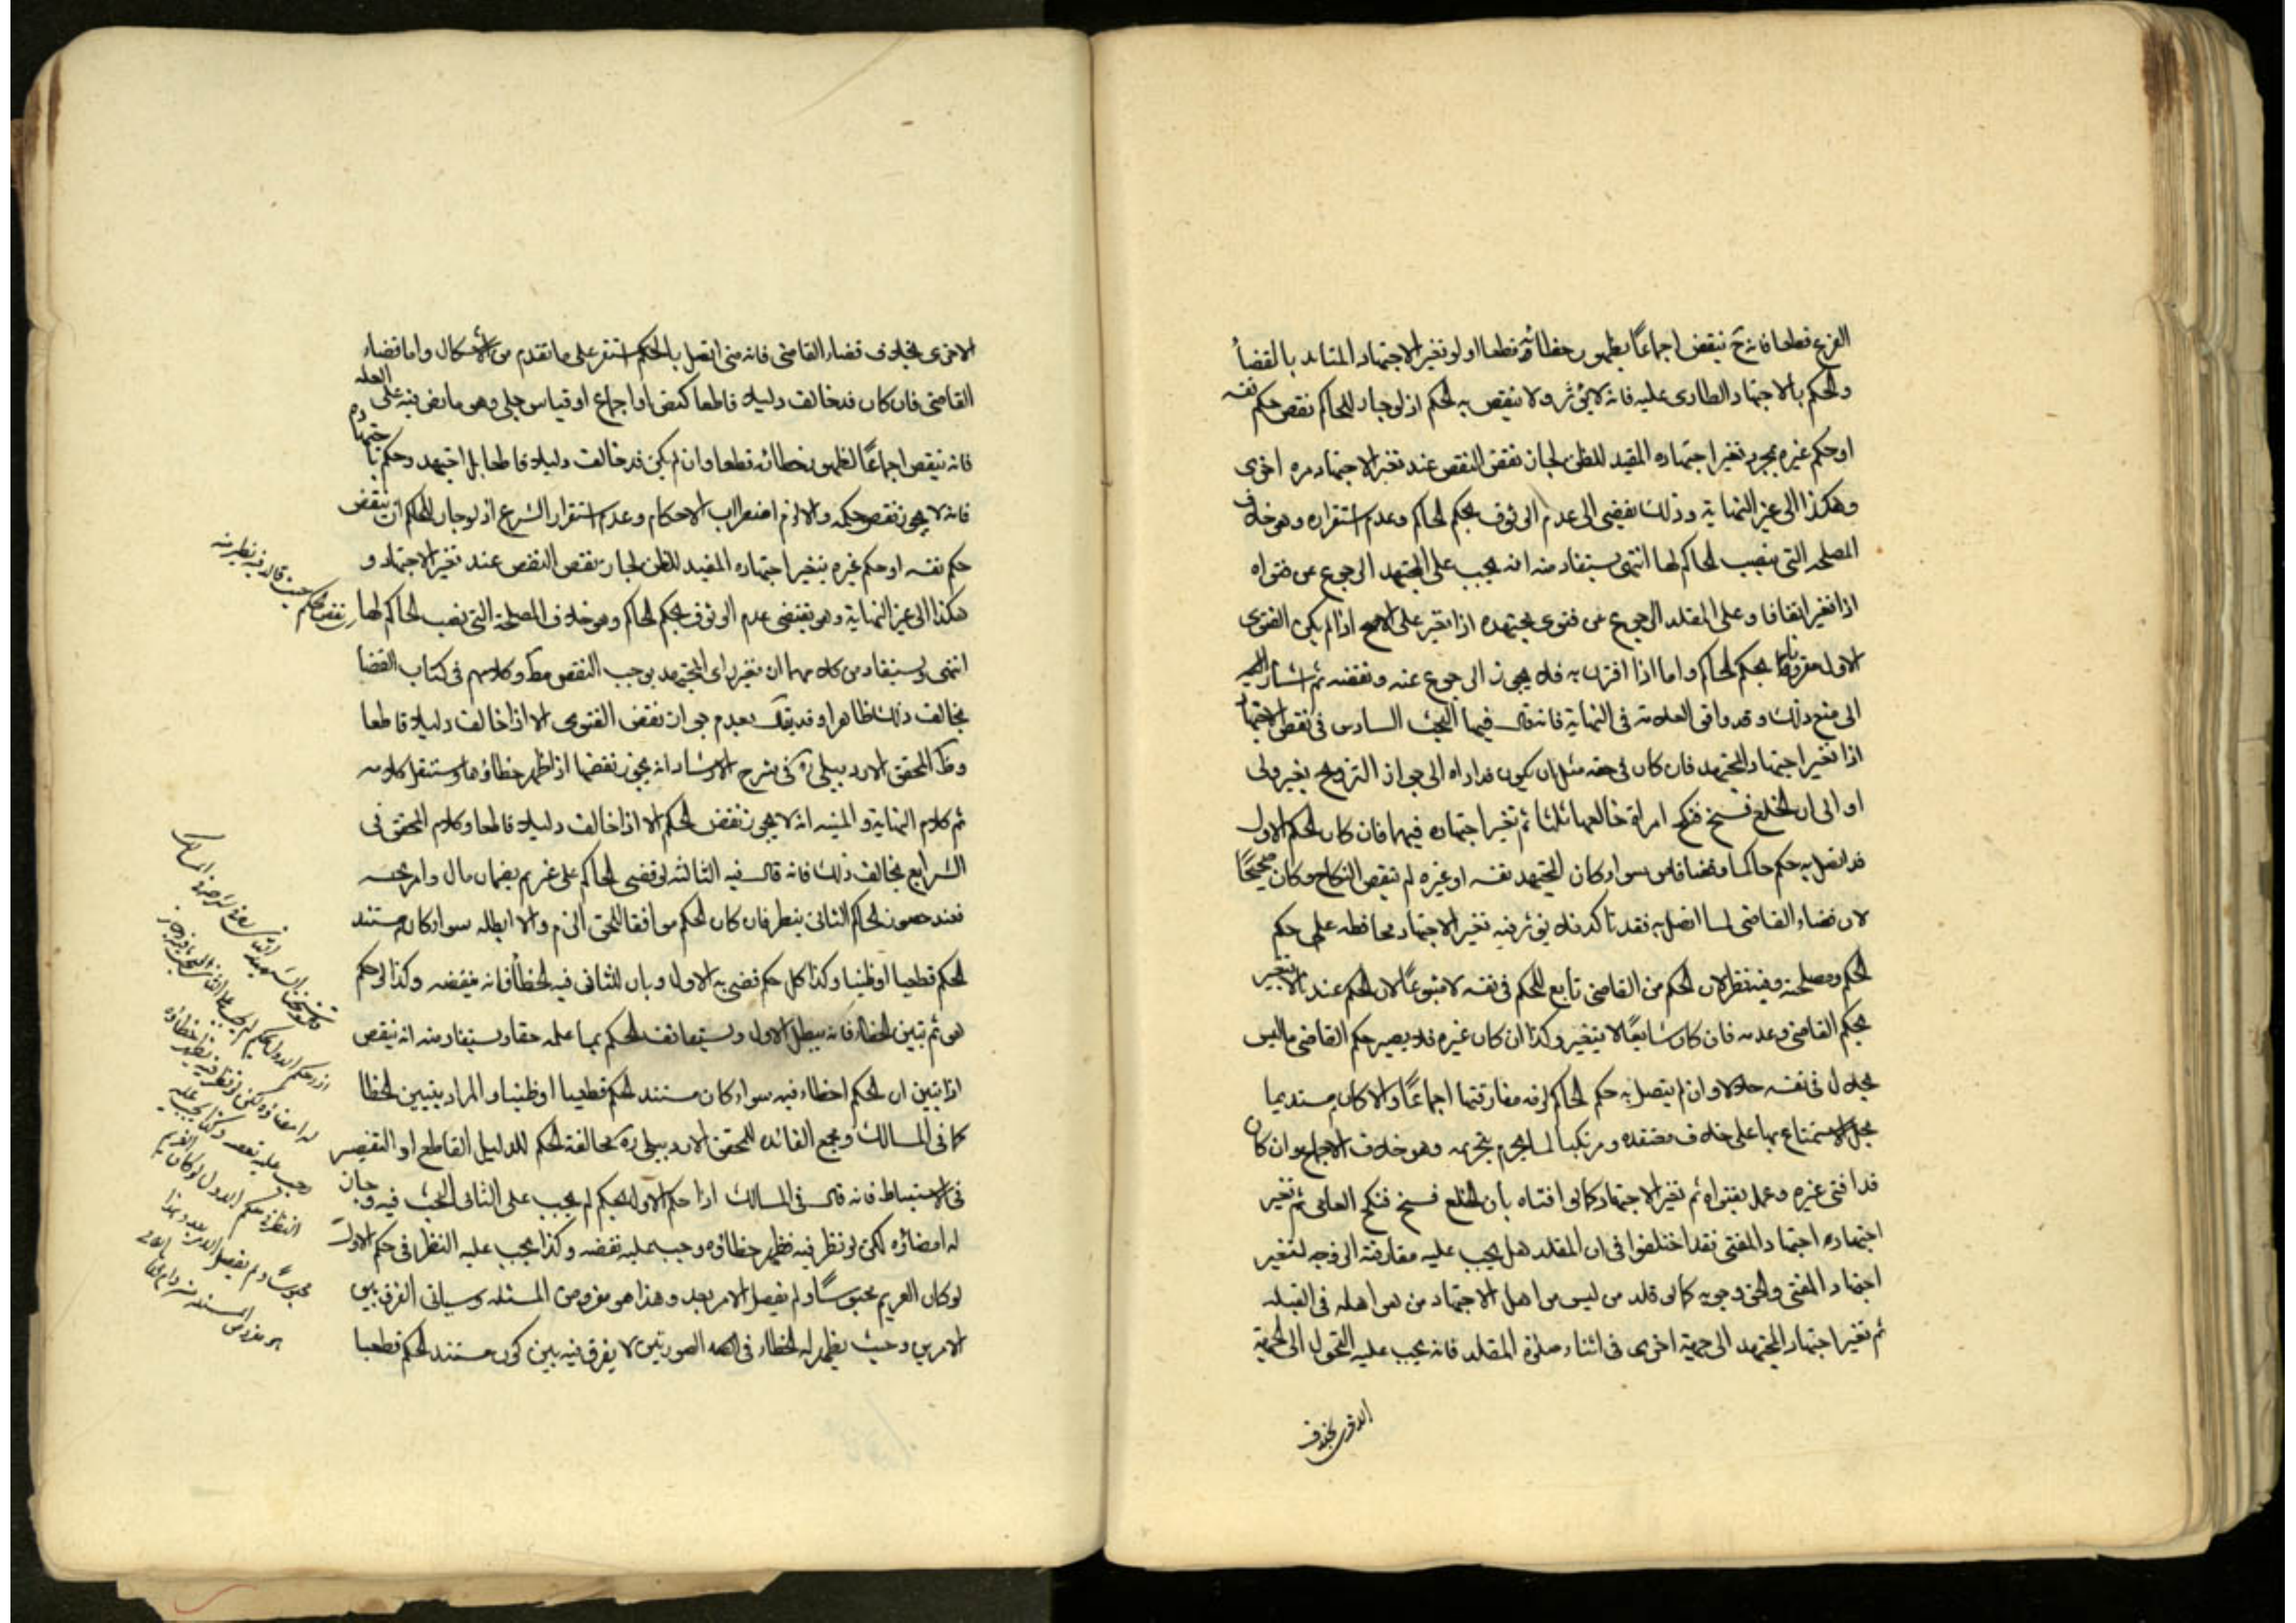 الفرع قطعا فانه ح ينقض اجماعاً بظهور خطائه قطعا ولو تغير الاجتهاد المتايد بالقضأ
والحكم بالاجتهاد الطارى عليه فانه لا يؤثر ولا ينقض به الحكم اذ لو جاز للحاكم نقض حكم نفسه
او حكم غيره بمجرد تغير اجتهاده المفيد للظن لجاز نقض النقض عند تغير الاجتهاد مره اخرى
وهكذا الى غير النهاية وذلك يفضى الى عدم الوثوق بحكم الحاكم وعدم استقراره وهو خلاف
المصلحه التى نصب الحاكم لها انتهى يستفاد منه انه يجب على المجتهد الرجوع عن فتواه
اذا تغير اتفاقا وعلى المقلد الرجوع عن فتوى مجتهده اذا تغير على الاصح اذا لم يكن الفتوى
الاول مقرونا بحكم الحاكم واما اذا اقترن به فلا يجوز الرجوع عنه ونقضه ثم اشار
الى منع ذلك وقد وافق العلامة فى النهاية فانه قال فيها البحث السادس فى نقض الاجتهاد
اذا تغير اجتهاد المجتهد فان كان فى حقه مثل ان يكون قد اداه الى جواز التزويج بغير ولى
او الى ان الخلع فسخ فنكح امراة خالعها ثلثا ثم تغير اجتهاده فيهما فان كان الحكم الاول
قد اتصل به حكم حاكما وقضا قاض سواء كان المجتهد نفسه او غيره لم ينقض النكاح وكان صحيحاً
لان قضاء القاضى لما اتصل به فقد تاكد فلا يؤثر فيه تغير الاجتهاد محافظه على حكم
الحكم ومصلحته وفيه نظر لان الحكم من القاضى تابع للحكم فى نفسه لا متبوعاً لان الحكم عندنا لا يتغير
بحكم القاضى وعدمه فان كان سابقاً لا يتغير وكذا ان كان غيره فلا يصير حكم القاضى ما ليس
بحلال فى نفسه حلالا وان لم يتصل به حكم الحاكم لزمه مفارقتها اجماعاً والا كان مستديما
بحل الاستمتاع بها على خلاف معتقده ومرتكبا لما يحرم بتحريمه وهو خلاف الاجماع وان كان
قد افتى غيره وعمل بفتواه ثم تغير الاجتهاد كما لو افتاه بان الخلع فسخ فنكح العامى ثم تغير
اجتهاده اجتهاد المفتى فقد اختلفوا فى ان المقلد هل يجب عليه مفارقة الزوجه لتغير
اجتهاد المفتى والحق وجوبه كما لو قلد من ليس من اهل الاجتهاد من هو اهله فى القبله
ثم تغير اجتهاد المجتهد الى جهة اخرى فى اثناء صلوة المقلد فانه يجب عليه التحول الى الجهة
الاخرى بخلاف
الاخرى بخلاف قضاء القاضى فانه متى اتصل بالحكم استقر على ما تقدم من الاشكال واما قضاء
القاضى فان كان قد خالف دليلا قاطعا كنص او اجماع او قياس جلى وهو ما نص فيه على العله
فانه ينقض اجماعاً لظهور خطائه قطعا وان لم يكن قد خالف دليلا قاطعا بل اجتهد وحكم باجتهاده
فانه لا يجوز نقض حكمه والا لزم اضطراب الاحكام وعدم استقرار الشرع اذ لو جاز للحاكم ان ينقض
حكم نفسه او حكم غيره بتغير اجتهاده المفيد للظن لجاز نقض النقض عند تغير الاجتهاد و
هكذا الى غير النهاية وهو يقتضى عدم الوثوق بحكم الحاكم وهو خلاف المصلحة التى نصب الحاكم لها
انتهى ويستفاد من كلامهما ان تغير راى المجتهد يوجب النقض مط وكلامهم فى كتاب القضا
يخالف ذلك ظاهرا وقد يق بعدم جواز نقض الفتوى الا اذا خالف دليلا قاطعا
وظ المحقق الاردبيلى ره فى شرح الارشاد انه يجوز نقضها اذا ظهر خطاؤها وستنقل كلامه
ثم كلام النهاية والمنيه انه لا يجوز نقض الحكم الا اذا خالف دليلا قاطعا وكلام المحقق فى
الشرايع يخالف ذلك فانه قال فيه الثالثه لو قضى الحاكم على غريم بضمان مال وامر بحبسه
فعند حضور الحاكم الثانى ينظر فان كان الحكم موافقا للحق الزم والا ابطله سواء كان مستند
الحكم قطعيا او ظنيا وكذا كل حكم قضى به الاول وبان للثانى فيه الخطأ فانه ينقضه وكذا لو حكم
هو ثم تبين الخطاء فانه يبطل الاول ويستانف الحكم بما علمه حقا ويستفاد منه انه ينقض
اذا تبين ان الحكم اخطاء فيه سواء كان مستند الحكم قطعيا او ظنيا والمراد بتبين الخطا
كما فى المسالك ومجمع الفائده للمحقق الاردبيلى ره مخالفة الحكم للدليل القاطع او التقصير
فى الاستنباط فانه قال فى المسالك اذا حكم الاول بحكم لم يجب على الثانى البحث فيه وجاز
له امضائه لكن لو نظر فيه فظهر خطاؤه وجب عليه نقضه وكذا يجب عليه النظر فى حكم الاول
لو كان الغريم محبوساً ولم يفصل الامر بعد وهذا هو مفروض المسئله وسياتى الفرق بين
الامرين وحيث يظهر له الخطاء فى هذه الصورتين لا يفرق فيه بين كون مستند الحكم قطعيا